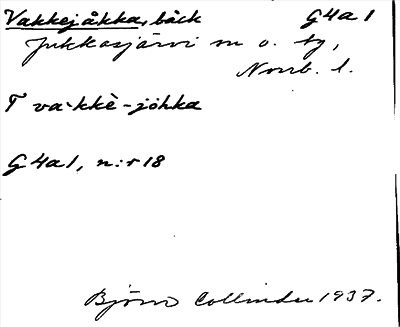 Vakkejåkka, bäck G4a1
Jukkasjärvi sn o. tg,
Norrb. l.
T va·kkè-jòhka
G4a1, n:r 18
Björn Collinder 1937.